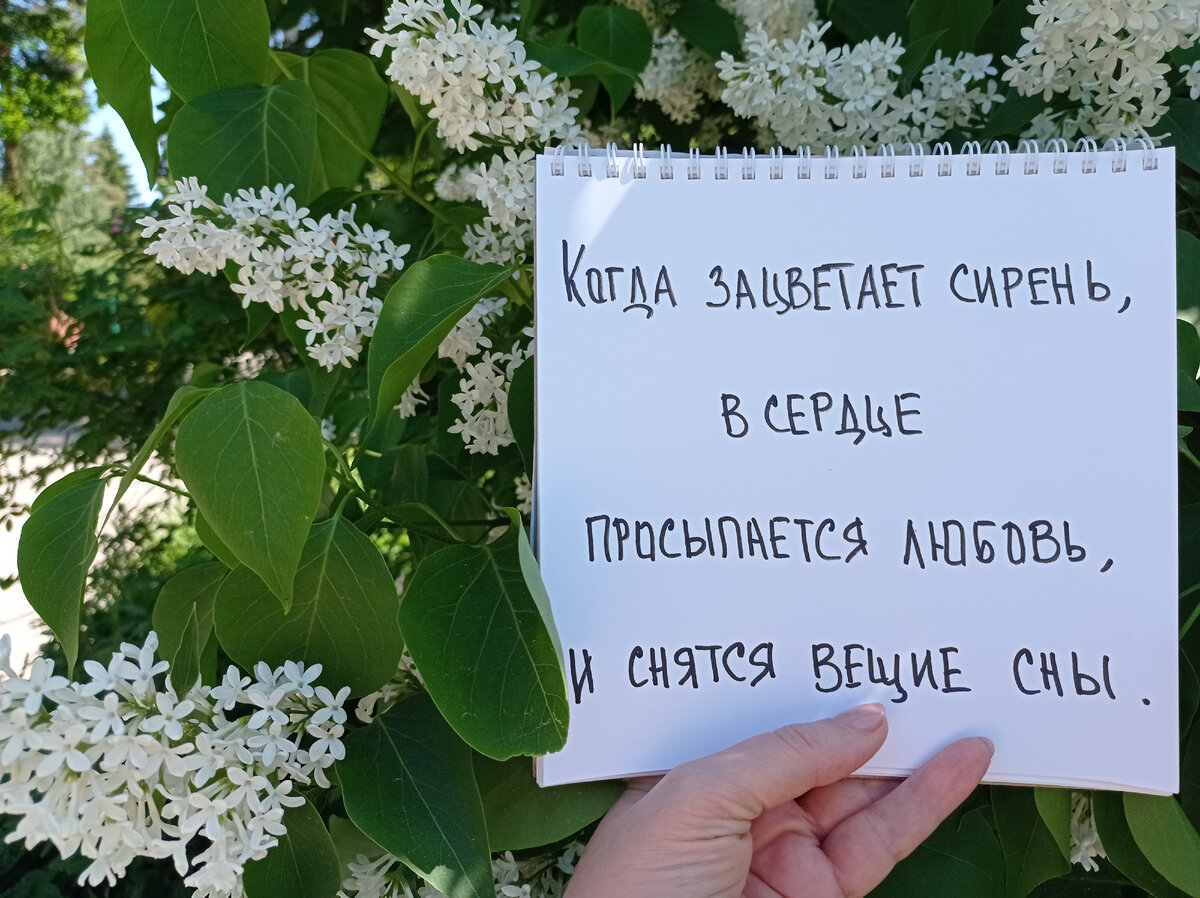 Когда зацветает сирень,
в сердце
просыпается любовь,
и снятся вещие сны.